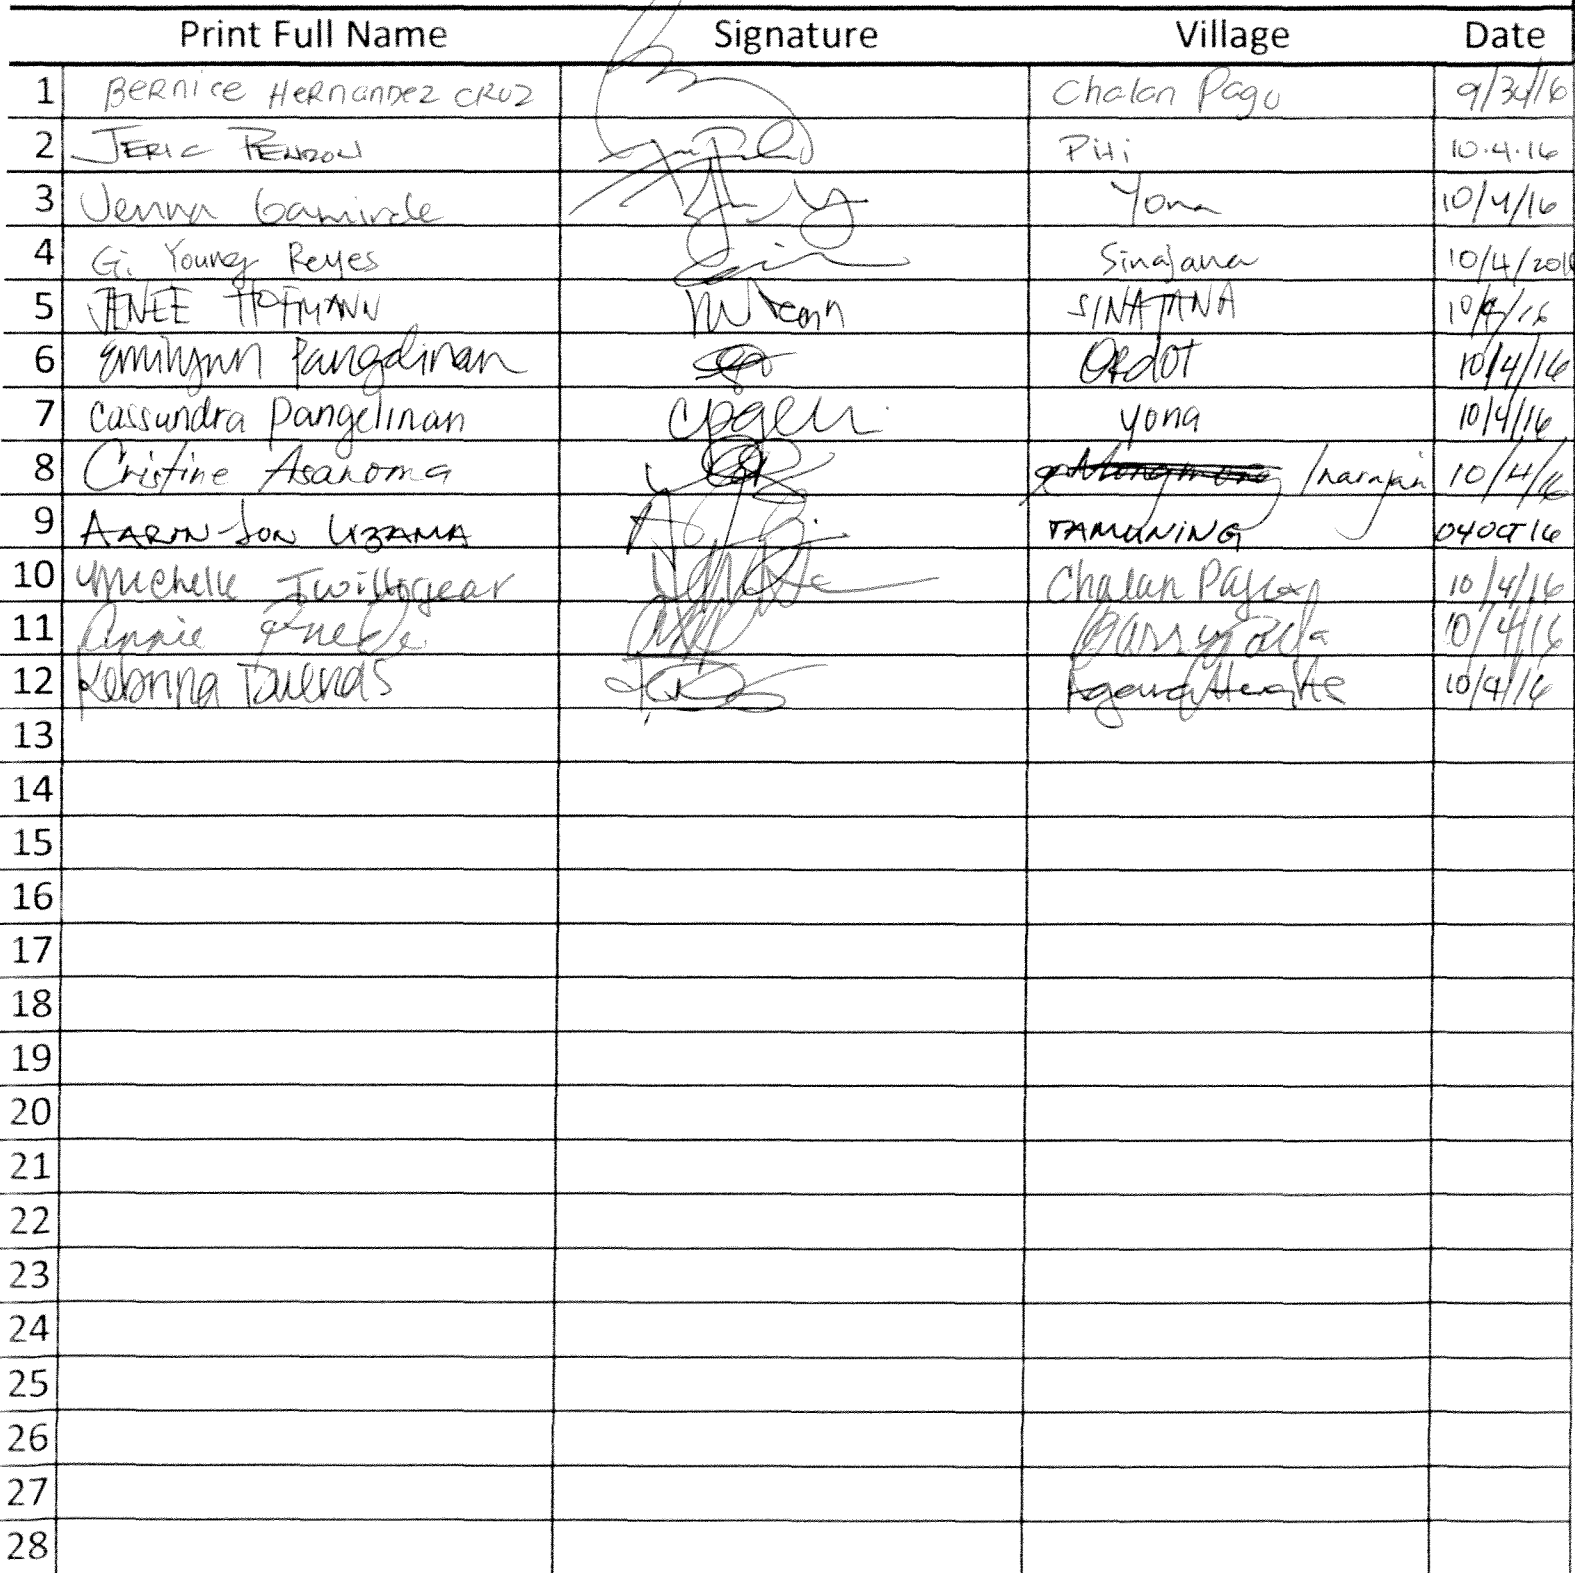 Print Full Name Signature Village Date
1 Bernice Hernandez Cruz Chalan Pago 9/30/16
2 Jeric Pendon Piti 10.4.16
3 Jenna Gaminde Yona 10/4/16
4 Gi Young Reyes Sinajana 10/4/2016
5 JENEE HOFMANN SINAJANA 10/4/16
6 Emilynn Pangelinan Ordot 10/4/16
7 Cassandra Pangelinan Yona 10/4/16
8 Cristine Asanoma Inarajan 10/4/16
9 AARON-JON UZAMA TAMUNING 04OCT16
10 Michelle Twillogear Chalan Pago 10/4/16
11 Annie 10/4/16
12 Duenas Agana Heights 10/4/16
13
14
15
16
17
18
19
20
21
22
23
24
25
26
27
28